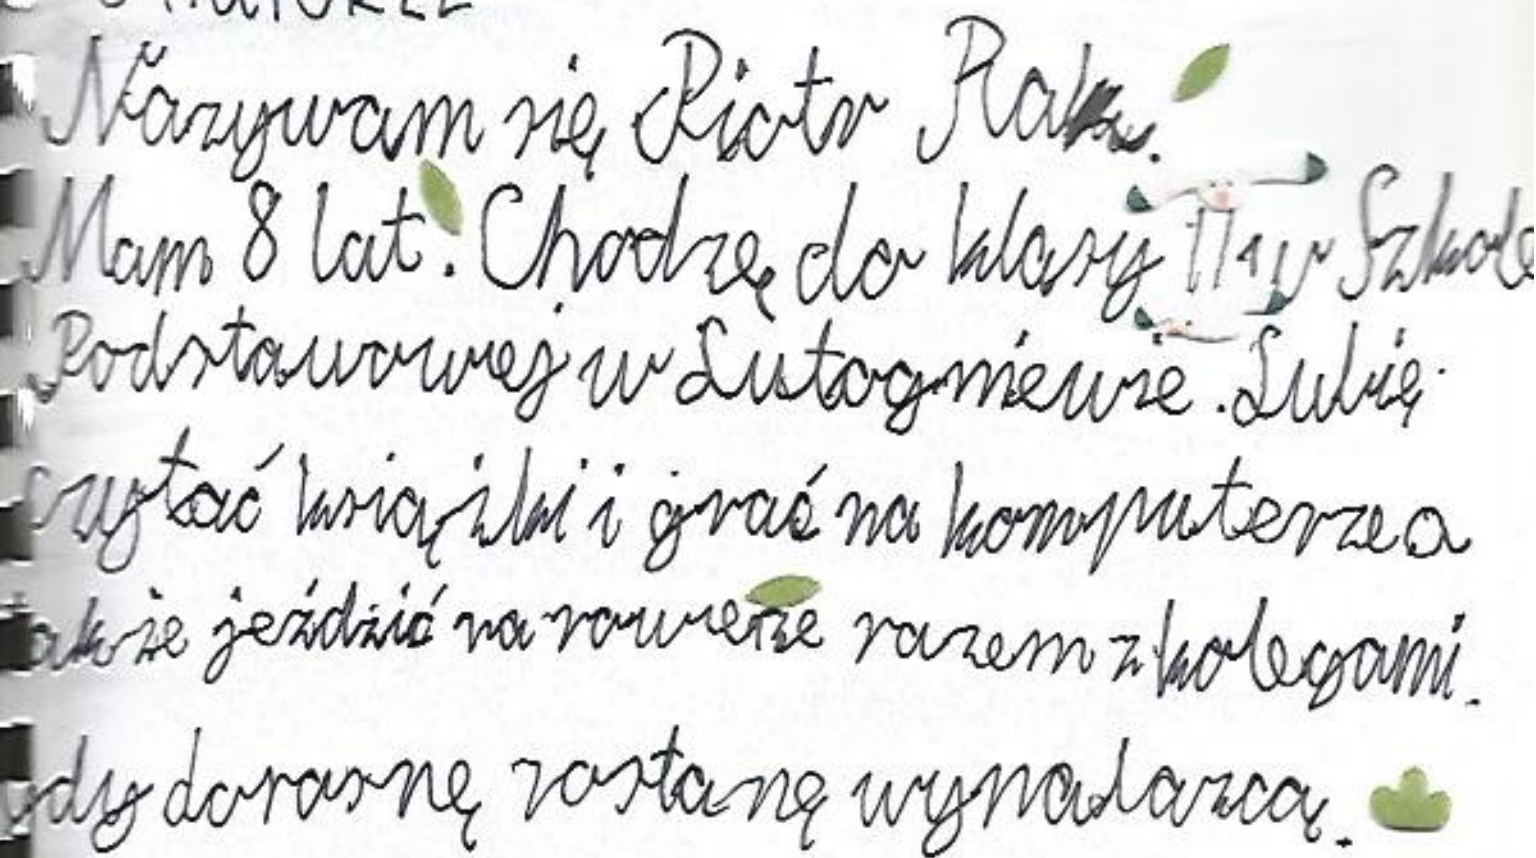 Nazywam się Piotr Rak.
Mam 8 lat. Chodzę do klasy II w Szkole
Podstawowej w Lutogniewie. Lubię
czytać książki i grać na komputerze a
także jeździć na rowerze razem z kolegami.
gdy dorosnę zostanę wynalazcą.